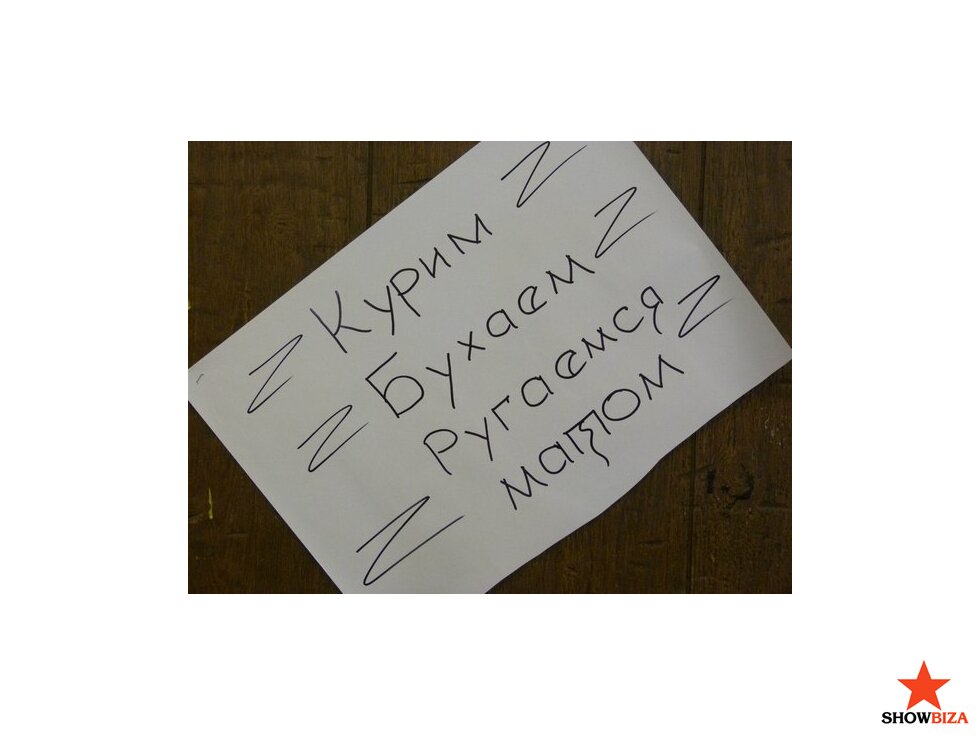 Курим
Бухаем
Ругаемся
матом
SHOWBIZA